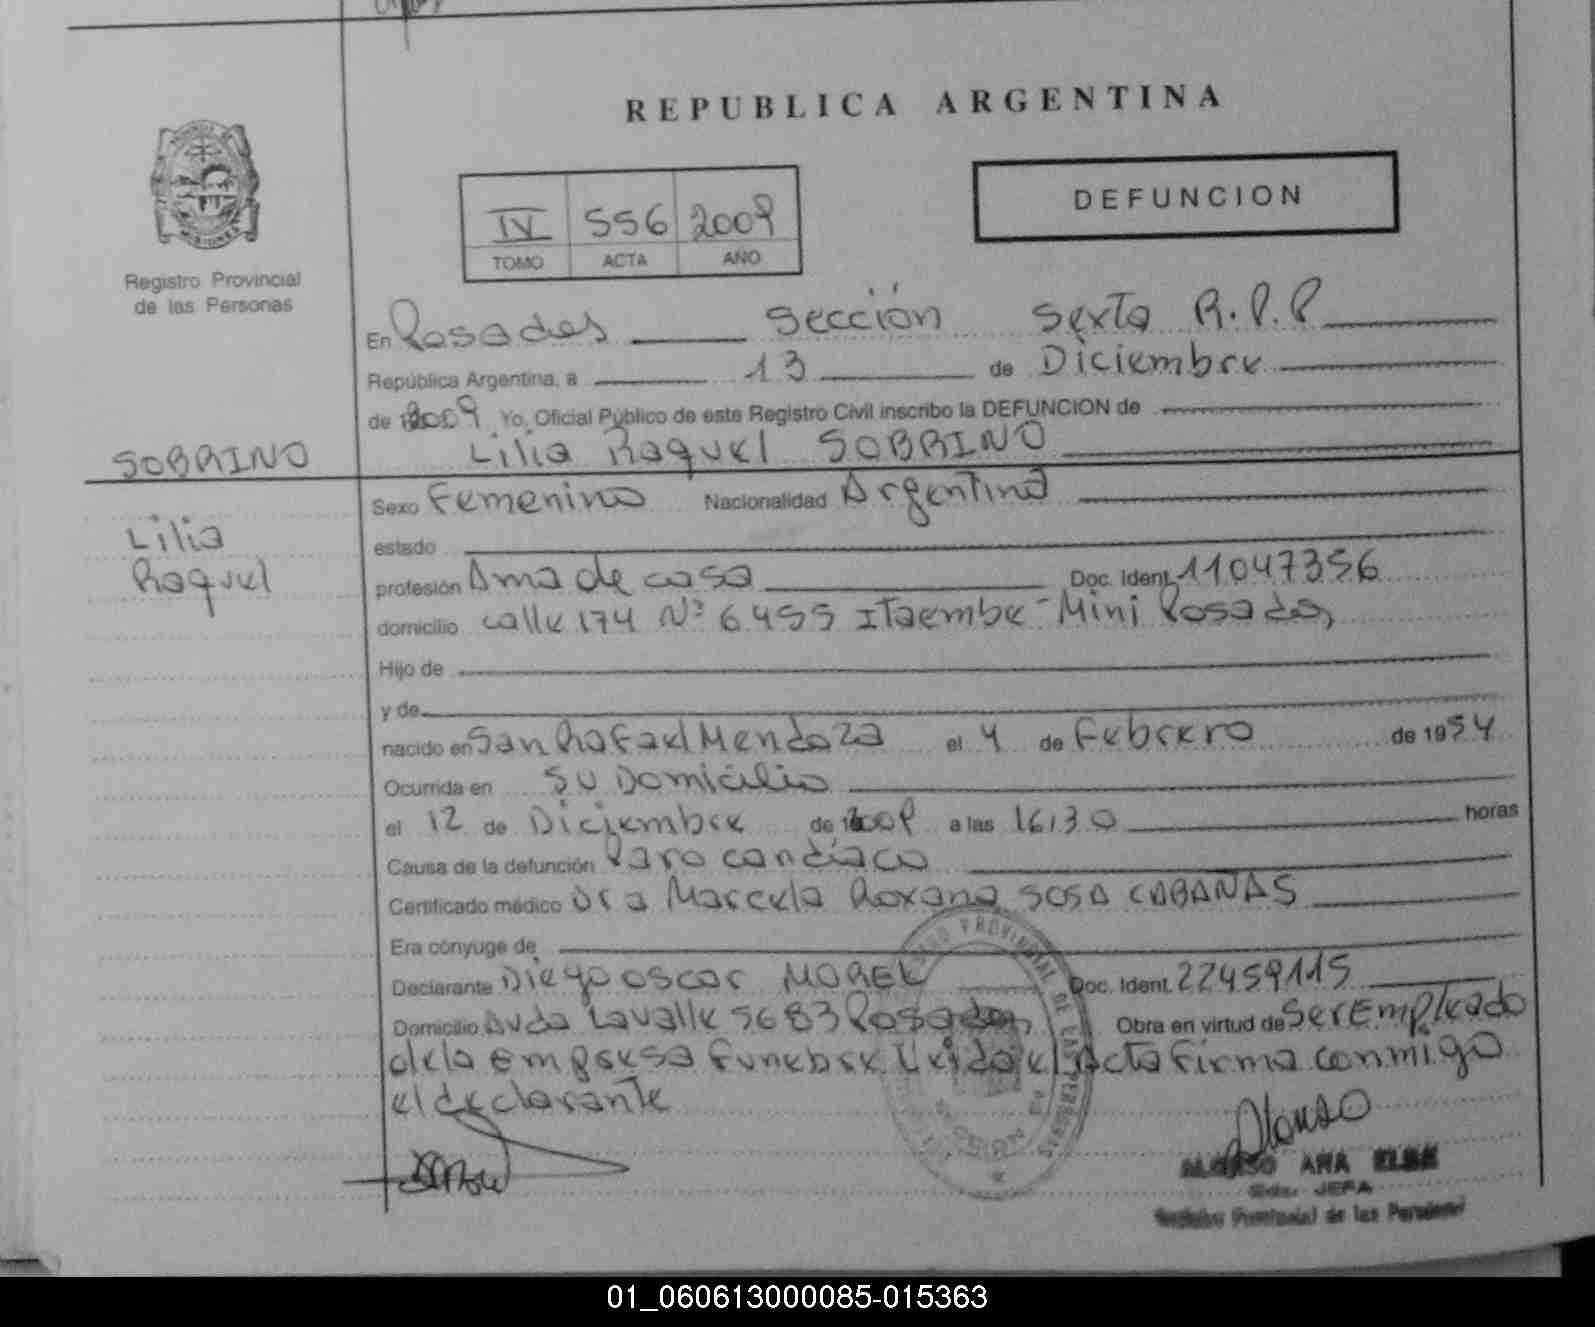 REPUBLICA ARGENTINA
MISIONES
Registro Provincial
de las Personas
IV 556 2009
TOMO ACTA AÑO
DEFUNCION
En Posadas Sección Sexta R.P.P
República Argentina, a 13 de Diciembre
de 2009 Yo, Oficial Público de este Registro Civil inscribo la DEFUNCION de
Lilia Raquel SOBRINO
SOBRINO
Lilia
Raquel
Sexo Femenino Nacionalidad Argentina
estado
profesión Ama de casa Doc. Ident. 11047356
domicilio calle 174 Nº 6455 Itaembe-Mini Posadas,
Hijo de
y de
nacido en San Rafael Mendoza el 4 de Febrero de 1954
Ocurrida en su Domicilio
el 12 de Diciembre de 2009 a las 16:30 horas
Causa de la defunción Paro cardiaco
Certificado médico Dra Marcela Roxana SOSA CABAÑAS
Era cónyuge de
Declarante Diego oscar MOREL Doc. Ident. 22459115
Domicilio Avda Lavalle 5683 Posadas, Obra en virtud de Ser Empleado
de la Empresa Funebre Leida el Acta Firma conmigo
el declarante
Alonso
ALONSO ANA ELSA
JEFA
Registro Provincial de las Personas
01_060613000085-015363